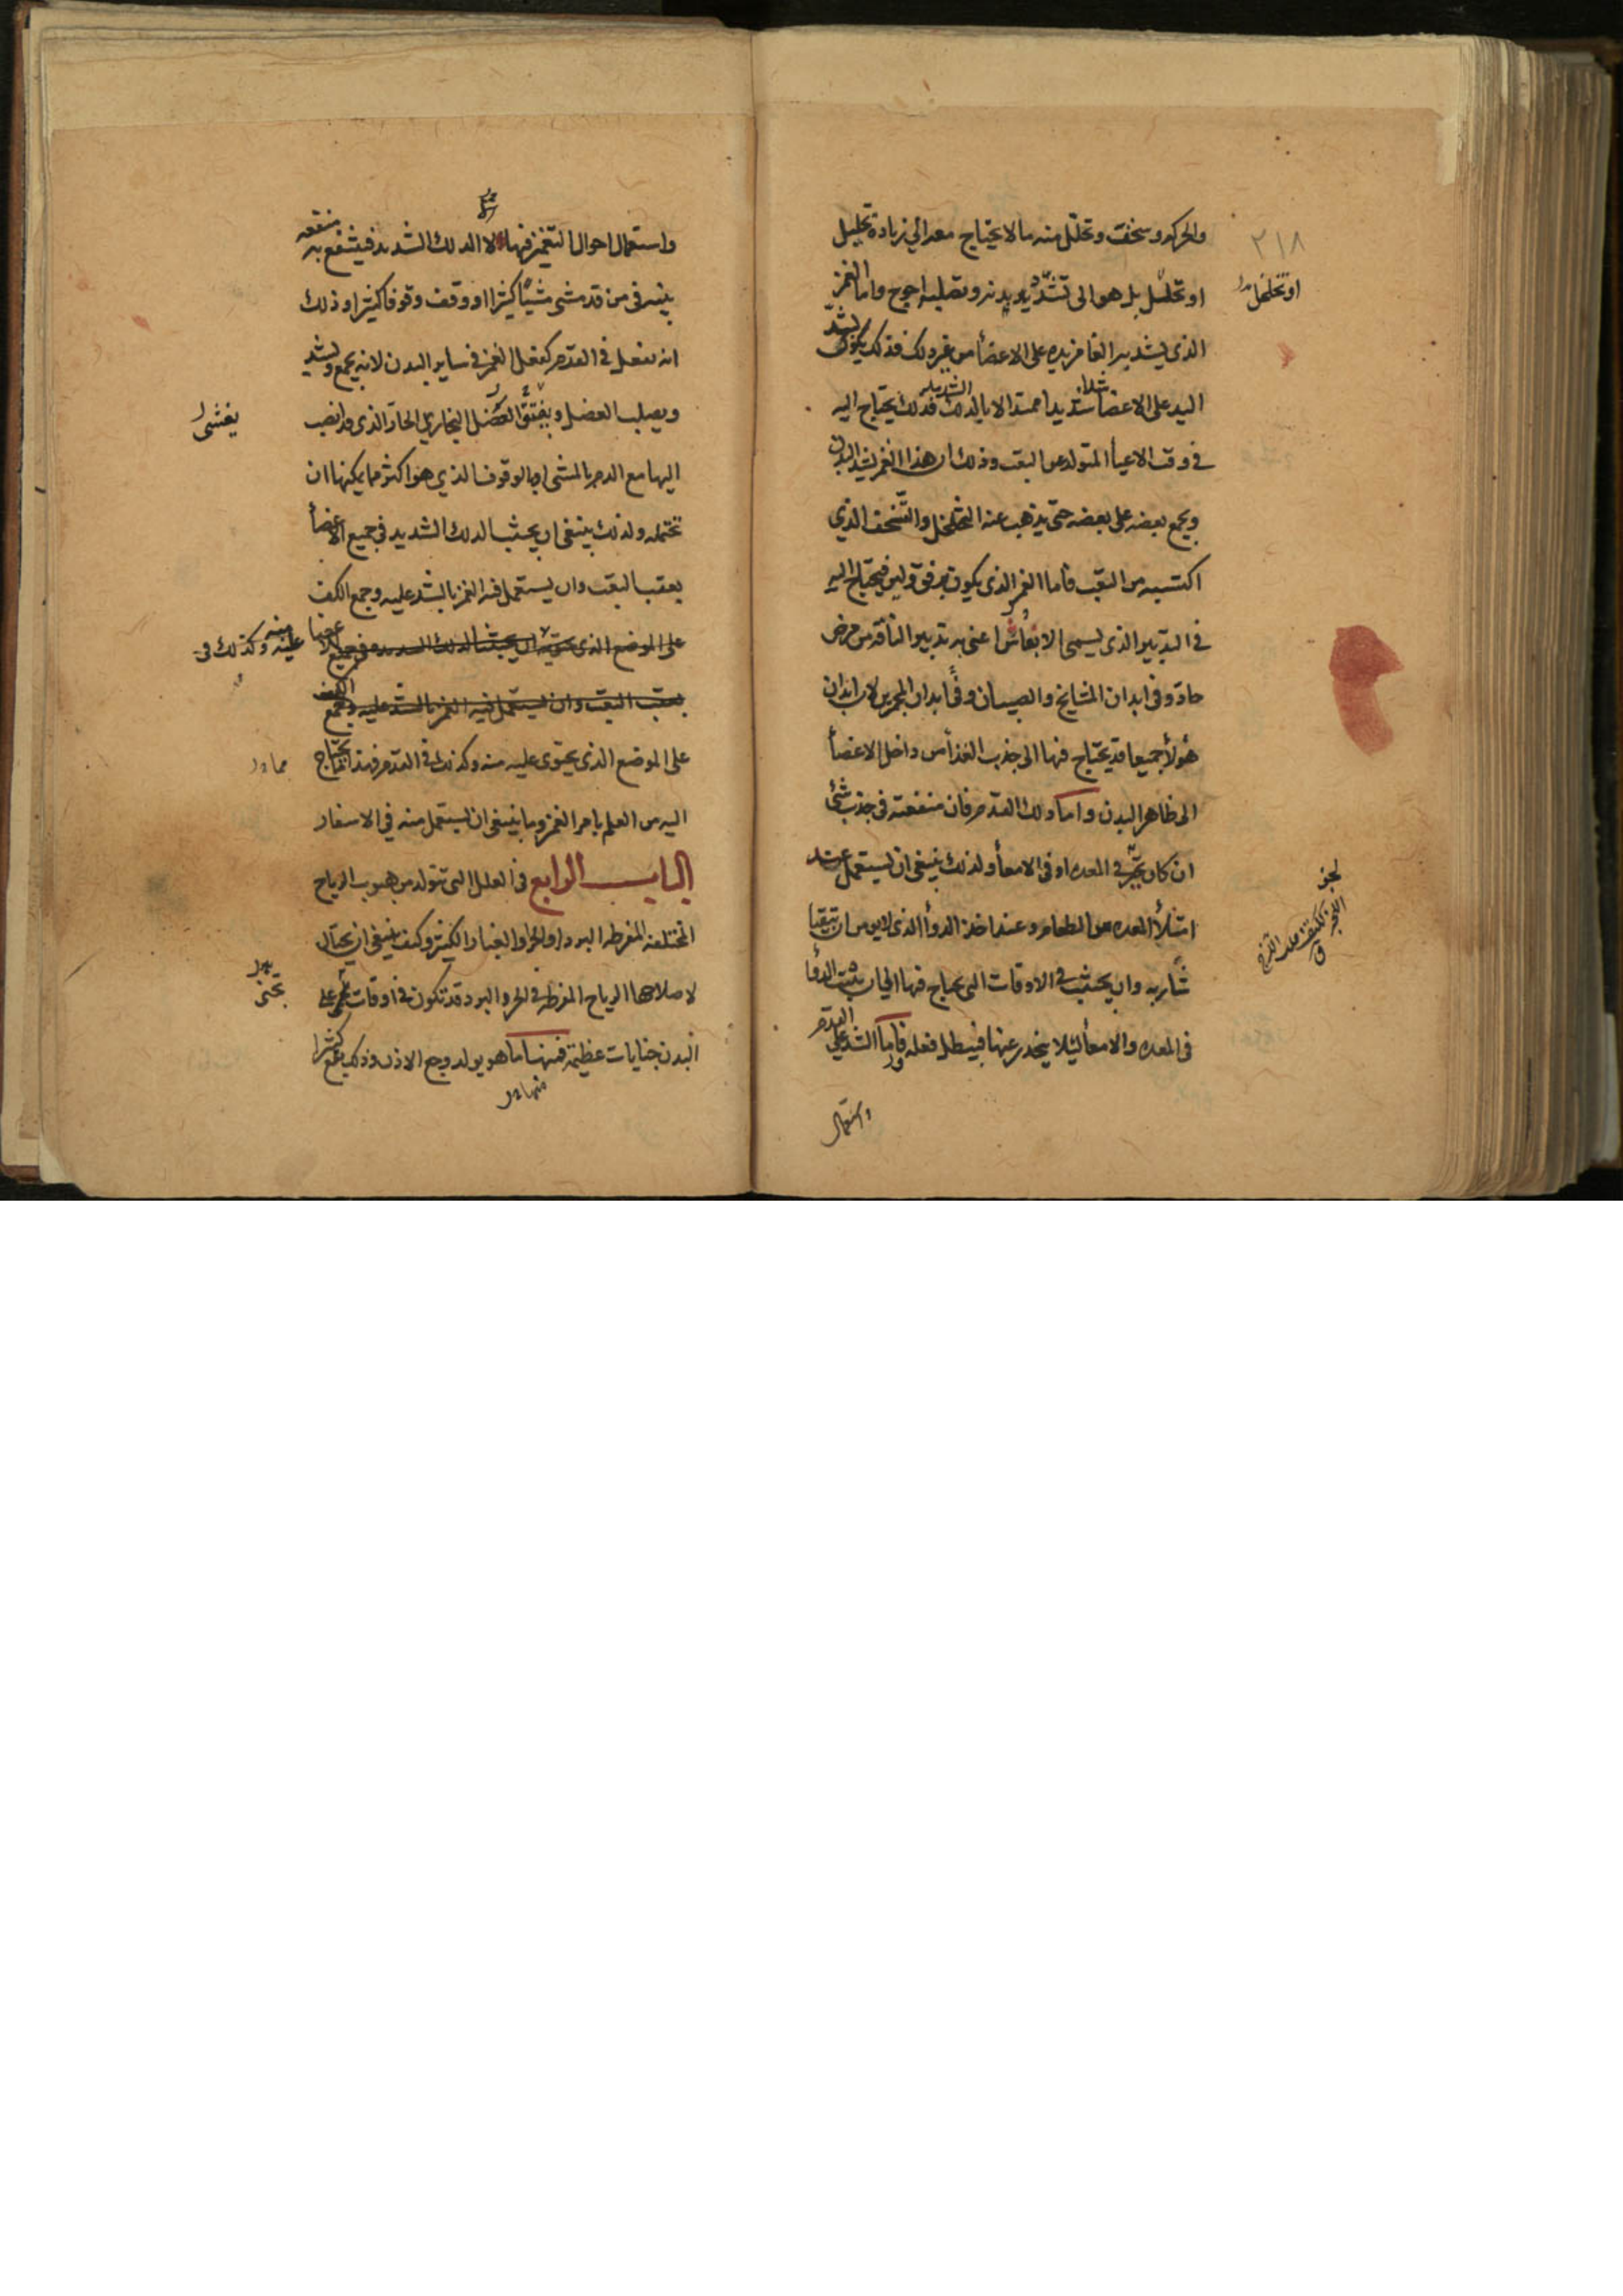 والحركه وسخفت وتحلل منه ما لا يحتاج معه الي زيادة تحليل
٢١٨
او تحليل بل هو الى تشديد بدنه وتصليبه احوج واما الغمز
او تخلخل
الذي يشد بيد الغامز يده على الاعضأ من غير دلك فذلك يكون بشد
اليد على الاعضأ شدا شديدا لا بالدلك الشديد فذلك يحتاج اليه
في وقت الاعيأ المتولد عن التعب وذلك ان هذا الغمز يشد البدن
ويجمع بعضه على بعضه حتى يذهب عنه التخلخل والتسخف الذي
اكتسبه من التعب فاما الغمز الذي يكون برفق ولين فيحتاج اليه
في التدبير الذي يسمى الانعاش اعنى به تدبير الناقه من مرض
حاد وفى ابدان المشايخ والصبيان وفى ابدان لان ابدان
هؤلأ جميعا قد يحتاج فيها الى جذب الغذأ من داخل الاعضأ
الى ظاهر البدن واما دلك القدم فان منفعته في جذب شئ
ان كان في المعده او فى الامعأ ولذلك ينبغى ان يستعمل عند
امتلأ المعده من الطعام وعند اخذ الدوأ الذى لا يومن ان يتقيا
شاربه وان يجتنب في الاوقات التى يحتاج فيها الى ان يثبت الدوأ
فى المعده والامعأ ليلا ينحدر عنها فيبطل فعله فاما الشد على القدم
واستعمال
واستعمال احوال التغميز فيها لا الدلك الشديد فينتفع به منفعه
بينه في من قد مشى مشيا كثيرا او وقف وقوفا كثيرا وذلك
انه يفعل في القدم كفعل الغمز في ساير البدن لانه يجمع ويشد
ويصلب العضل البخاري الحار الذى قد انصب
يفشى
اليها مع الدم بالمشى او بالوقوف الذي هو اكثر مما يمكنها ان
تحتمله ولذلك ينبغى ان يجتنب الدلك الشديد في جميع الاعضأ
بعقب التعب وان يستعمل فيه الغمز بالشد عليه وجمع الكف
على الموضع الذى يجتنب الدلك الشديد في جميع الاعضا
عليه منه وكذلك فى
بعقب التعب وان يستعمل فيه الغمز بالشد عليه وجمع الكف
على الموضع الذى يحتوى عليه منه وكذلك في القدم فهذا يحتاج
مما
اليه من العلم بامر الغمز وما ينبغى ان يستعمل منه في الاسفار
الباب الرابع في العلل التى تتولد من هبوب الرياح
المختلفه المفرطه البرد او الحر او الغبار الكثير وكيف ينبغى ان يحتال
لاصلاحها الرياح المفرطه في الحر والبرد قد تكون في اوقات على
تجنى
البدن جنايات عظيمه فمنها ما هو يولد وجع الاذن وذلك كثيرا
منها